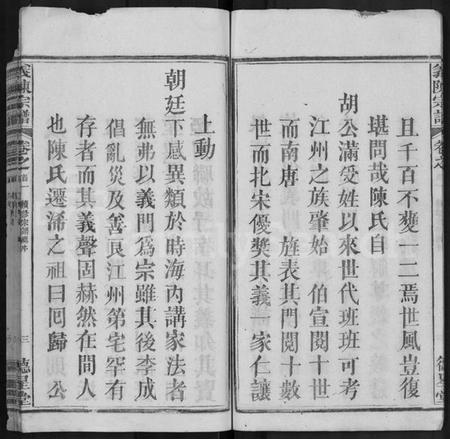 義陳宗譜
卷之
德星堂
且千百不變一二焉世風豈復
堪問哉陳氏自
胡公滿受姓以來世代班班可考
江州之族肇始 伯宣閱十世
而南唐 旌表其門閱十數
世而北宋優獎其義一家仁讓
上動
朝廷下感異類於時海內講家法者
無弗以義門為宗雖其後李成
倡亂災及善良江州第宅罕有
存者而其義聲固赫然在間人
也陳氏遷浠之祖曰囘歸 公
義陳宗譜
卷之
三
德星堂